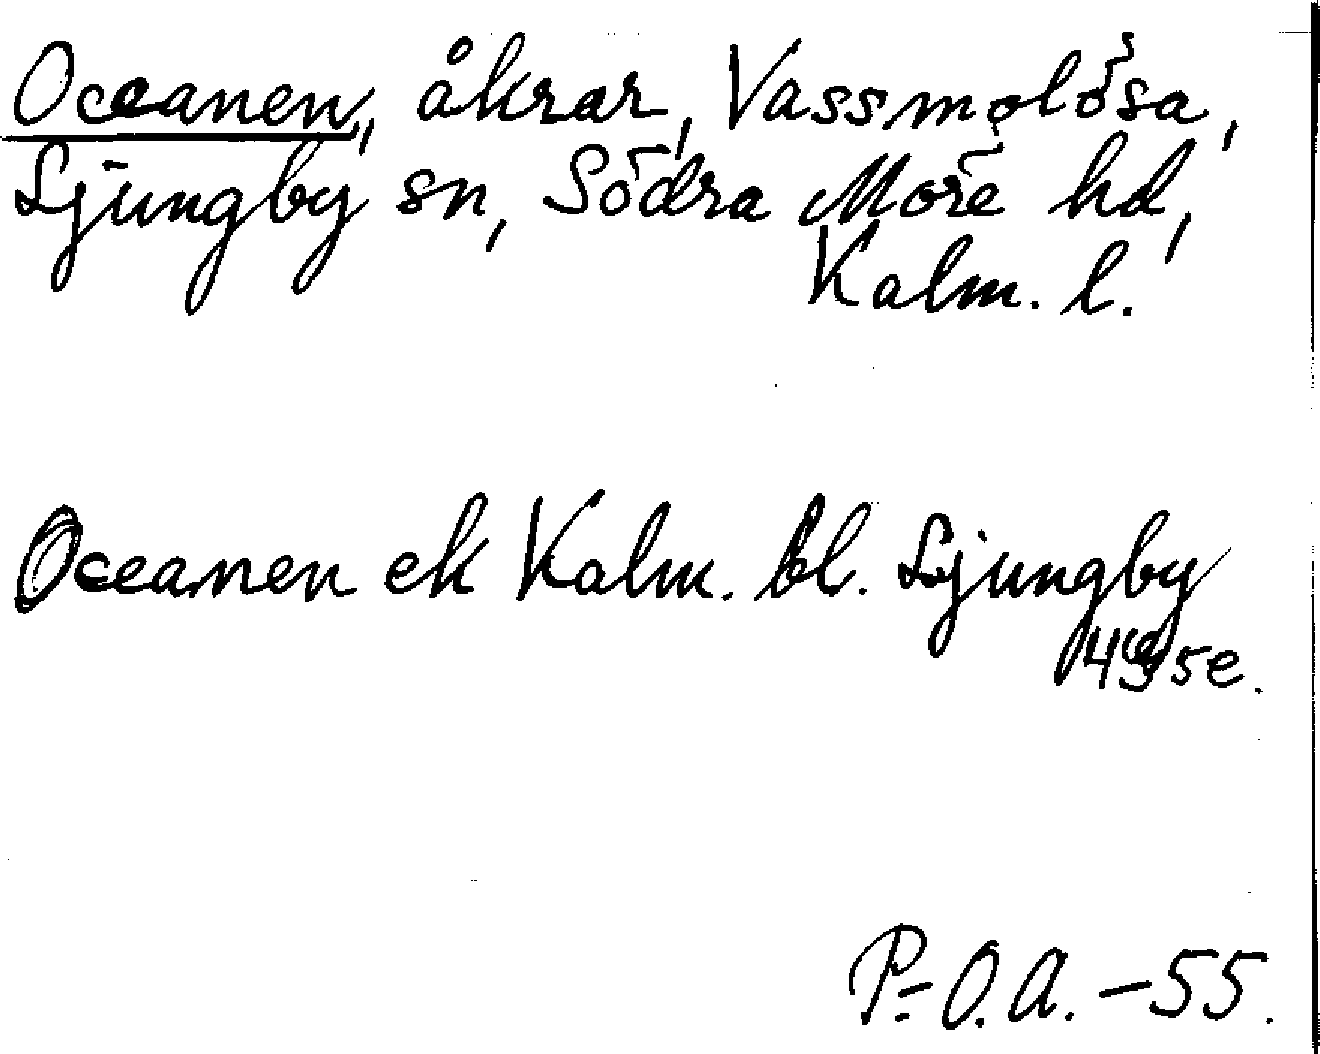 Oceanen, åkrar, Vassmolösa,
Ljungby sn, Södra Möre hd,
Kalm. l.
Oceanen ek Kalm. bl. Ljungby
P.-O.A. -55.